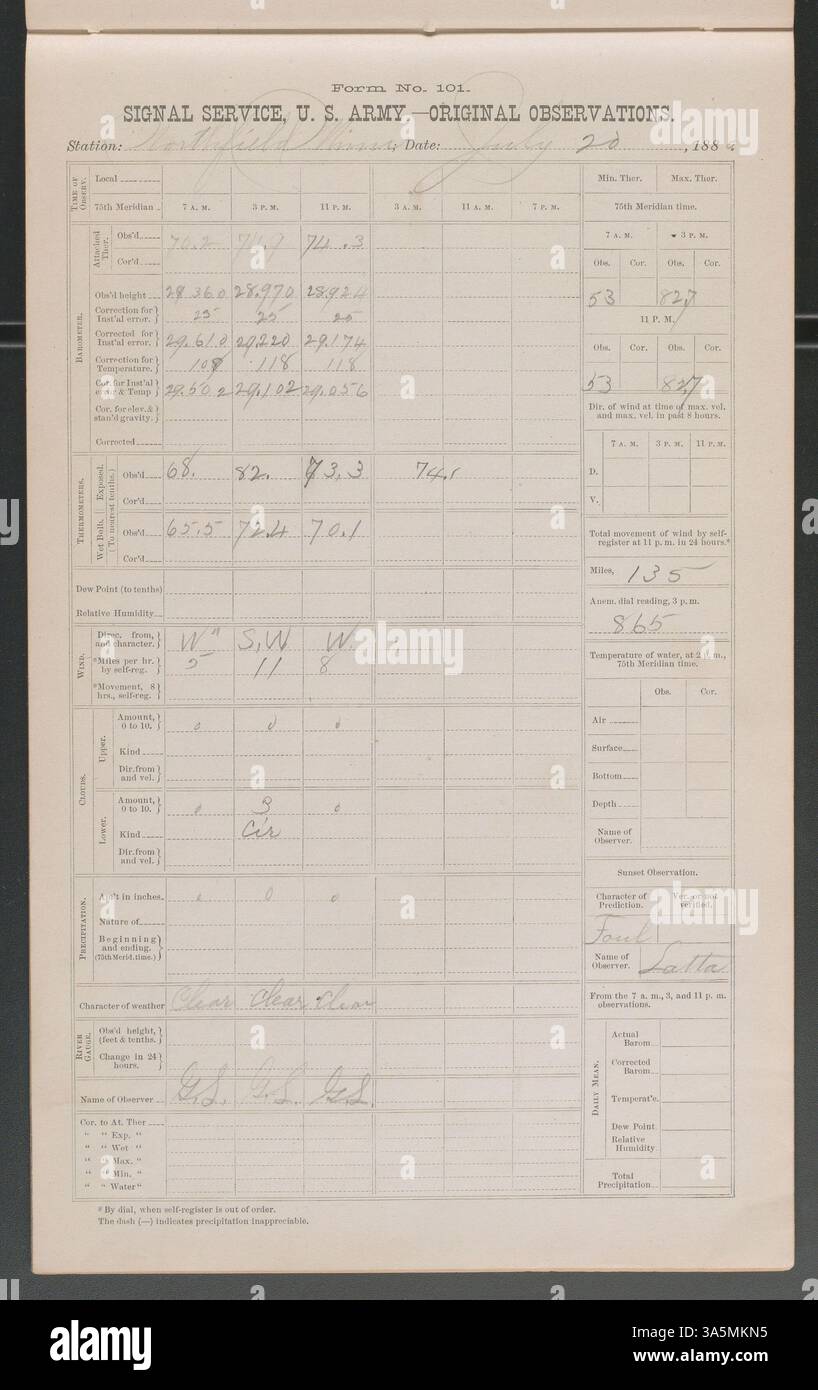 Form No. 101.
SIGNAL SERVICE, U. S. ARMY.—ORIGINAL OBSERVATIONS.
Station: Northfield Minn; Date: July 20, 188
TIME OF OBSERV.
Local
75th Meridian 7 A. M. 3 P. M. 11 P. M. 3 A. M. 11 A. M. 7 P. M.
BAROMETER.
Attached Ther.
Obs'd 70.2 74.9 74.3
Cor'd
Obs'd height 28.970 28.924
Correction for Inst'al error. 25 25 25
Corrected for Inst'al error. 29.610 29.220 29.174
Correction for Temperature. 118 118
Cor. for Inst'al error & Temp 29.502 29.102 29.056
Cor. for elev. & stan'd gravity.
Corrected
THERMOMETERS.
(To nearest tenths.)
Exposed.
Obs'd 68. 82. 73.3 74.1
Cor'd
Wet Bulb.
Obs'd 65.5 72.4 70.1
Cor'd
Dew Point (to tenths)
Relative Humidity
WIND.
Direc. from, and character. W S.W W.
*Miles per hr. by self-reg. 5 11 8
*Movement, 8 hrs., self-reg.
CLOUDS.
Upper.
Amount, 0 to 10. 0 0 0
Kind
Dir. from and vel.
Lower.
Amount, 0 to 10. 0 3 0
Kind Cir
Dir. from and vel.
PRECIPITATION.
Am't in inches. 0 0 0
Nature of
Beginning and ending. (75th Merid. time.)
Character of weather Clear Clear Clear
RIVER GAUGE.
Obs'd height, (feet & tenths.)
Change in 24 hours.
Name of Observer G.S. G.S. G.S.
Cor. to At. Ther
“ “ Exp. “
“ “ Wet “
“ “ Max. “
“ “ Min. “
“ “ Water “
* By dial, when self-register is out of order.
The dash (—) indicates precipitation inappreciable.
Min. Ther. Max. Ther.
75th Meridian time.
7 A. M. 3 P. M.
Obs. Cor. Obs. Cor.
53 82.7
11 P. M.
Obs. Cor. Obs. Cor.
53 82.7
Dir. of wind at time of max. vel. and max. vel. in past 8 hours.
7 A. M. 3 P. M. 11 P. M.
D.
V.
Total movement of wind by self-register at 11 p. m. in 24 hours.*
Miles, 135
Anem. dial reading, 3 p. m.
865
Temperature of water, at 2 p. m., 75th Meridian time.
Obs. Cor.
Air
Surface
Bottom
Depth
Name of Observer.
Sunset Observation.
Character of Prediction. Ver. or not verified.
Foul
Name of Observer. Latta
From the 7 a. m., 3, and 11 p. m. observations.
DAILY MEAN.
Actual Barom.
Corrected Barom.
Temperat'e.
Dew Point.
Relative Humidity
Total Precipitation
alamy
Image ID: 3A5MKN5
www.alamy.com